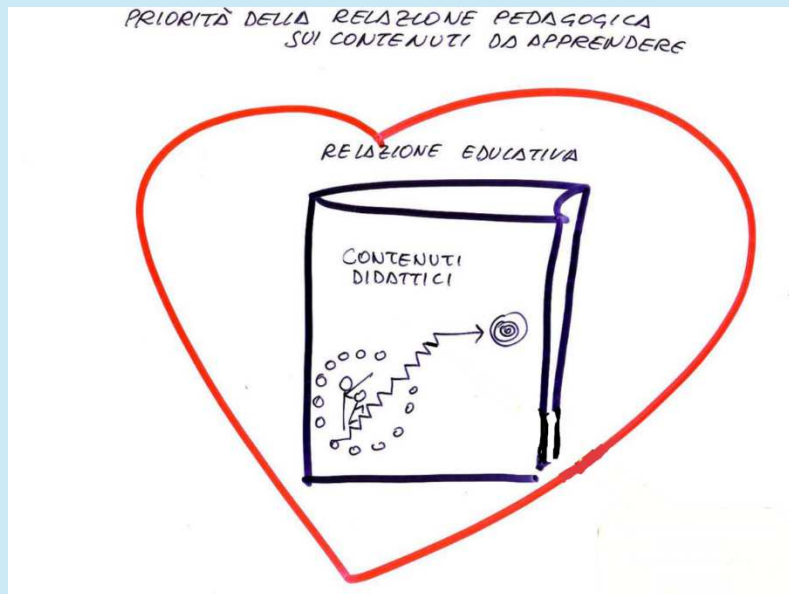 PRIORITÀ DELLA RELAZIONE PEDAGOGICA
SUI CONTENUTI DA APPRENDERE
RELAZIONE EDUCATIVA
CONTENUTI
DIDATTICI